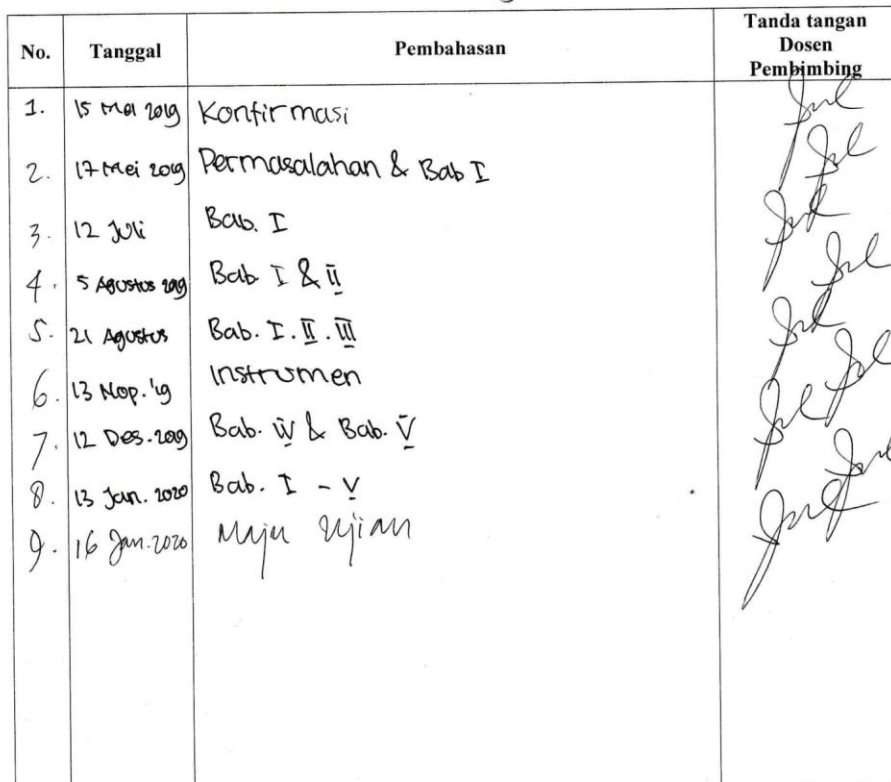 No. Tanggal Pembahasan Tanda tangan
Dosen
Pembimbing
1. 15 Mei 2019 Konfirmasi
2. 17 Mei 2019 Permasalahan & Bab I
3. 12 Juli Bab. I
4. 5 Agustus 2019 Bab I & II
5. 21 Agustus Bab. I. II. III
6. 13 Nop. '19 Instrumen
7. 12 Des. 2019 Bab. IV & Bab. V
8. 13 Jan. 2020 Bab. I - V
9. 16 Jan. 2020 Maju Ujian